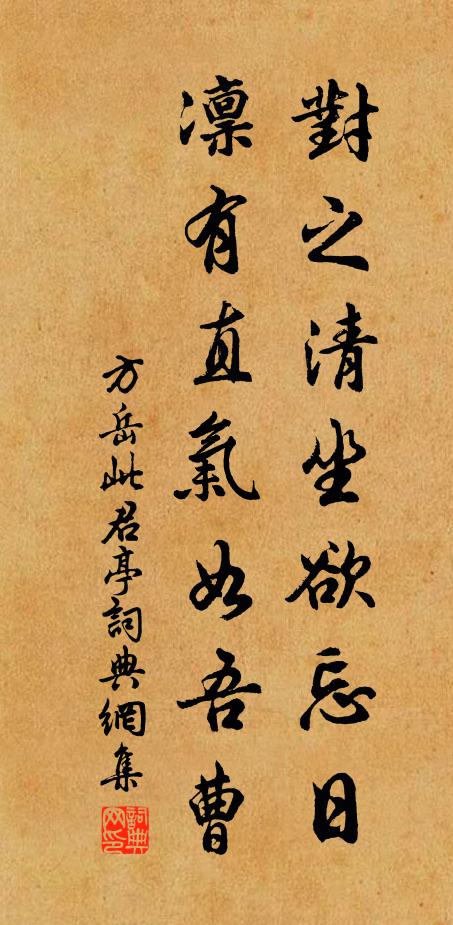 對之清坐欲忘日
凜有直氣如吾曹
方岳此君亭詞典網集
詞典网印